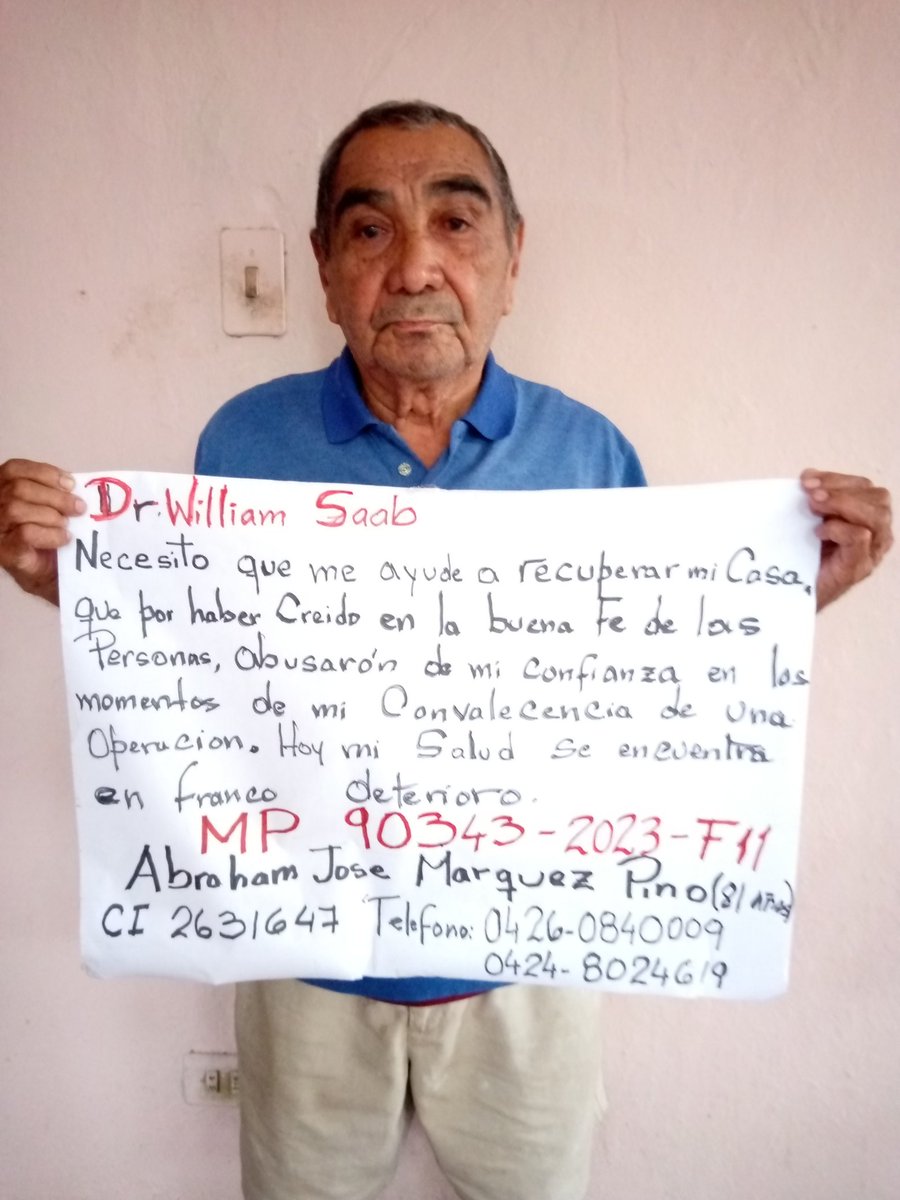 Dr. William Saab
Necesito que me ayude a recuperar mi Casa,
que por haber Creido en la buena Fe de las
Personas, abusarón de mi confianza en los
momentos de mi Convalecencia de una
Operacion. Hoy mi Salud se encuentra
en franco deterioro.
MP 90343-2023-F11
Abraham Jose Marquez Pino (81 Años)
CI 2631647 Telefono: 0426-0840009
0424-8024619